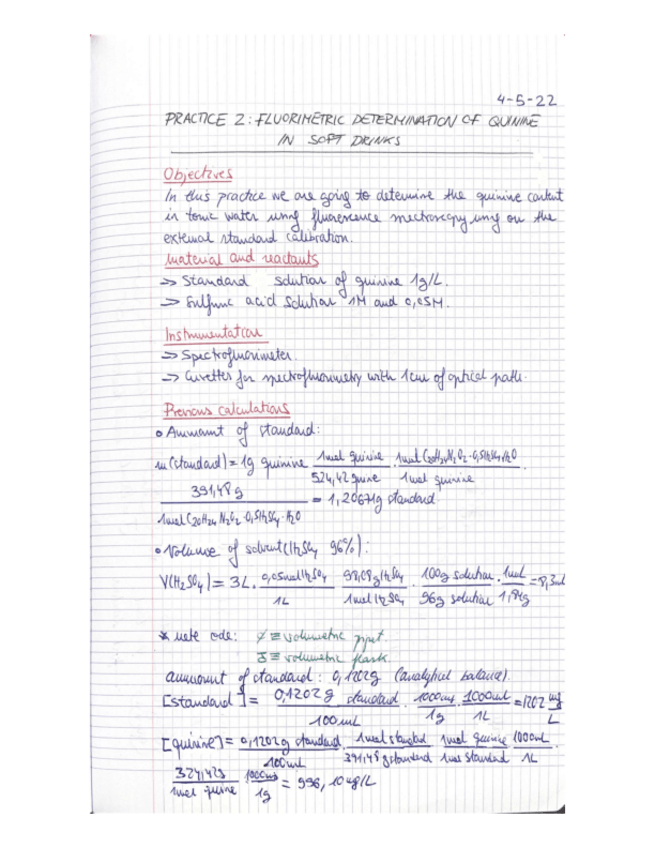 4-5-22
PRACTICE 2: FLUORIMETRIC DETERMINATION OF QUININE
IN SOFT DRINKS
Objectives
In this practice we are going to determine the quinine content
in tonic water using fluorescence spectroscopy using on the
external standard calibration.
Material and reactants
-> Standard solution of quinine 1g/L.
-> Sulfuric acid solution 1M and 0,05M.
Instrumentation
-> Spectrofluorimeter.
-> Cuvettes for spectrofluorimetry with 1cm of optical path.
Previous calculations
• Ammount of standard:
m(standard) = 1g quinine · 1mol quinine / 324,42g quinine · 1mol C20H24N2O2·0,5H2SO4·H2O / 1mol quinine ·
391,48g / 1mol C20H24N2O2·0,5H2SO4·H2O = 1,20671g standard
• Volume of solvent (H2SO4 96%):
V(H2SO4) = 3L · 0,05mol H2SO4 / 1L · 98,08g H2SO4 / 1mol H2SO4 · 100g solution / 96g solution · 1mL / 1,84g = 8,3mL
* note code: ≡ volumetric pipet.
≡ volumetric flask.
ammount of standard: 0,1202g (analytical balance).
[standard] = 0,1202g standard / 100mL · 1000mg / 1g · 1000mL / 1L = 1202 mg/L
[quinine] = 0,1202g standard / 100mL · 1mol standard / 391,48g standard · 1mol quinine / 1mol standard · 1000mL / 1L ·
324,42g / 1mol quinine · 1000mg / 1g = 996,10mg/L